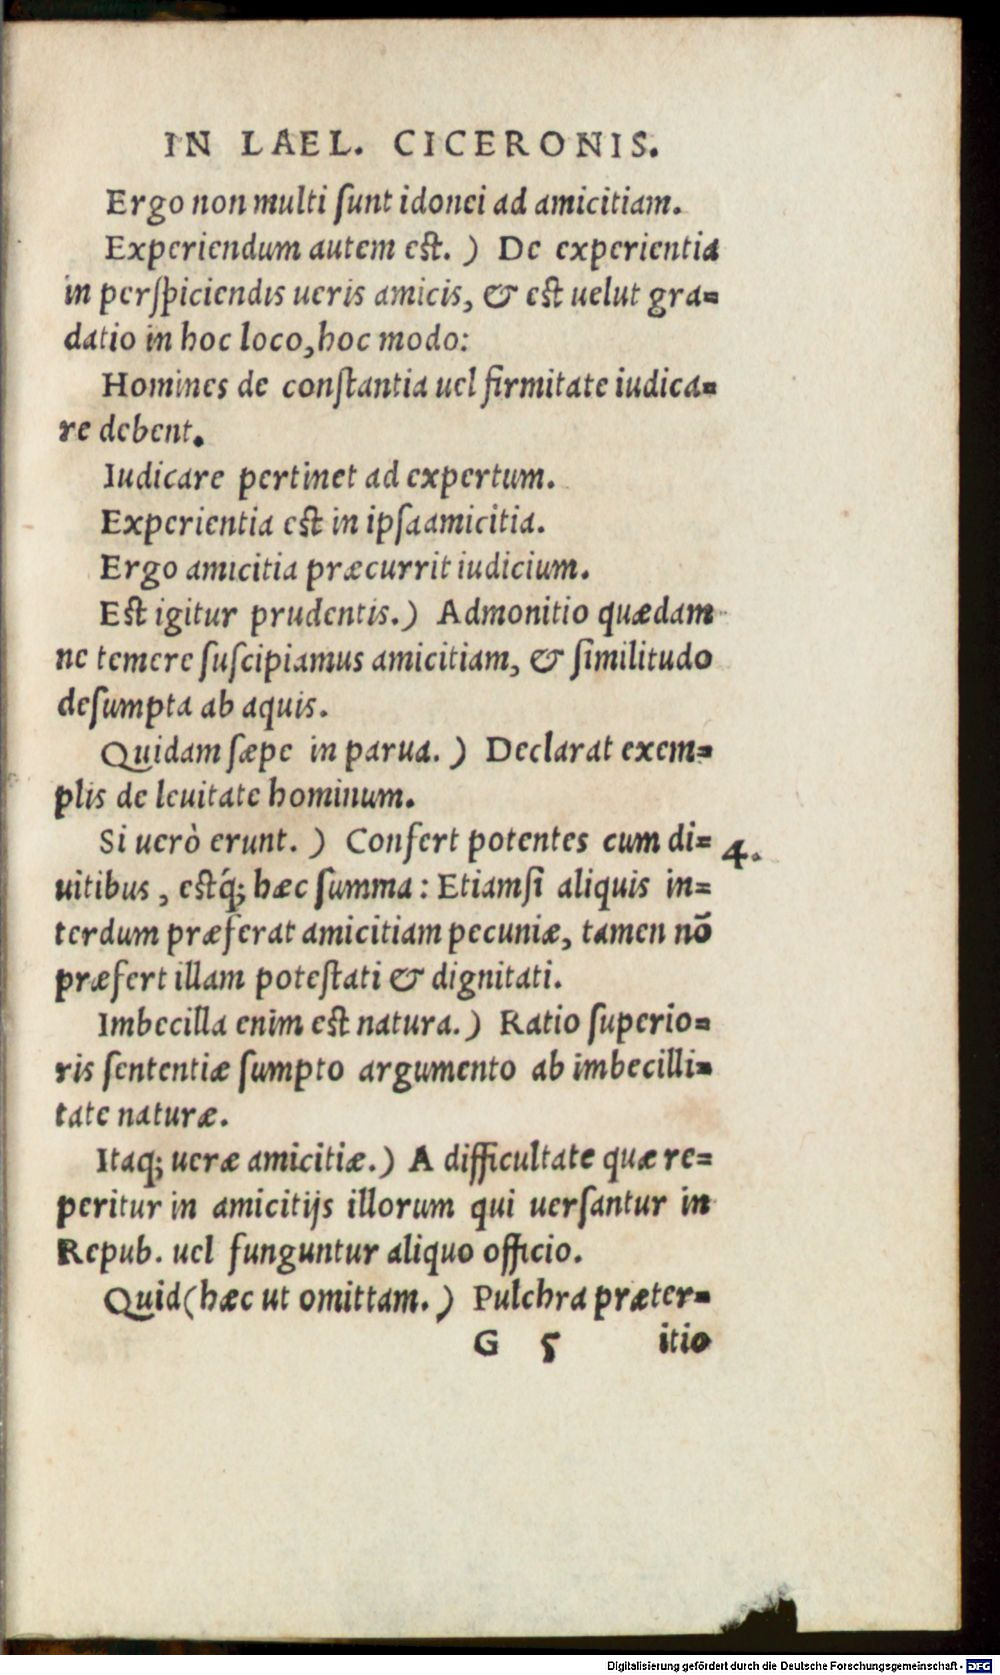 IN LAEL. CICERONIS.
Ergo non multi ſunt idonei ad amicitiam.
Experiendum autem eſt. ) De experientia
in perſpiciendis ueris amicis, & eſt uelut gra=
datio in hoc loco, hoc modo:
Homines de conſtantia uel firmitate iudica=
re debent.
Iudicare pertinet ad expertum.
Experientia eſt in ipſa amicitia.
Ergo amicitia præcurrit iudicium.
Eſt igitur prudentis.) Admonitio quædam
ne temere ſuſcipiamus amicitiam, & ſimilitudo
deſumpta ab aquis.
Quidam ſæpe in parua. ) Declarat exem=
plis de leuitate hominum.
Si uerò erunt. ) Confert potentes cum di= 4.
uitibus, eſtq́; hæc ſumma: Etiamſi aliquis in=
terdum præferat amicitiam pecuniæ, tamen nō
præfert illam poteſtati & dignitati.
Imbecilla enim eſt natura.) Ratio ſuperio=
ris ſententiæ ſumpto argumento ab imbecilli=
tate naturæ.
Itaq; ueræ amicitiæ.) A difficultate quæ re=
peritur in amicitijs illorum qui uerſantur in
Repub. uel funguntur aliquo officio.
Quid (hæc ut omittam. ) Pulchra præter=
G 5 itio
Digitalisierung gefördert durch die Deutsche Forschungsgemeinschaft - DFG